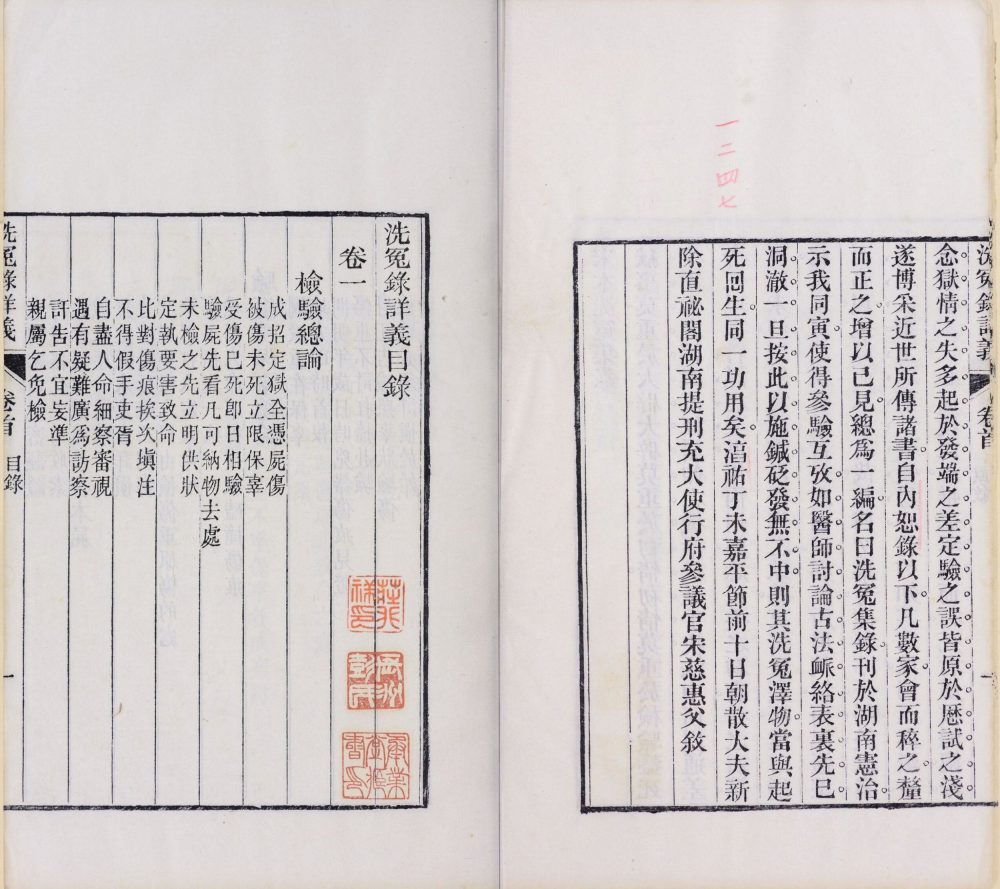 一二四七
洗冤錄詳義
卷首
一
念獄情之失多起於發端之差定驗之誤皆原於厯試之淺
遂博采近世所傳諸書自內恕錄以下凡數家會而稡之釐
而正之增以己見總爲一編名曰洗冤集錄刊於湖南憲治
示我同寅使得參驗互攷如醫師討論古法衇絡表裏先已
洞澈一旦按此以施鍼砭發無不中則其洗冤澤物當與起
死囘生同一功用矣湻祐丁未嘉平節前十日朝散大夫新
除直祕閣湖南提刑充大使行府參議官宋慈惠父敘
洗冤錄詳義目錄
卷一
檢驗總論
成招定獄全憑屍傷
被傷未死立限保辜
受傷已死卽日相驗
驗屍先看凡可納物去處
未檢之先立明供狀
定執要害致命
比對傷痕挨次塡注
不得假手吏胥
自盡人命細察審視
遇有疑難廣爲訪察
訐告不宜妄準
親屬乞免檢
洗冤錄詳義
卷首
目錄
一